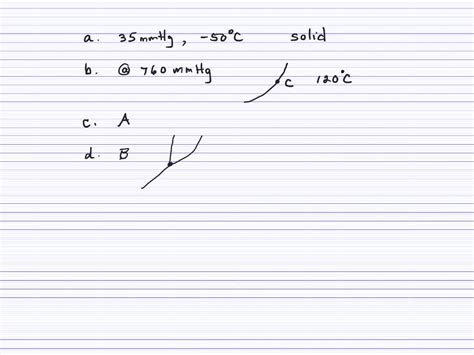 a. 35 mmHg, -50°C solid
b. @ 760 mmHg C 120°C
c. A
d. B